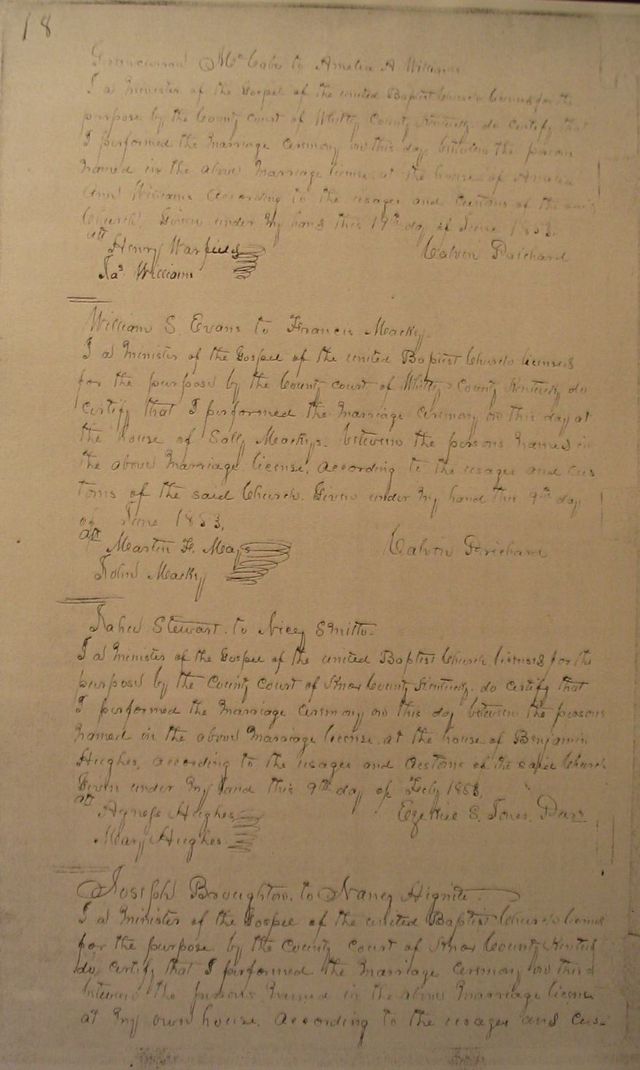 18
Greenwood McCabe to Amelia A Williams
I a Minister of the Gospel of the united Baptist Church licensed for the
purpose by the County court of Whitley County Kentucky do certify that
I performed the Marriage ceremony on this day between the persons
named in the above Marriage license at the house of Amelia
Ann Williams according to the usages and customs of the said
Church, Given under my hand this 19th day of June 1853.
att Henry Warfield Calvin Prichard
Jas William
William S. Evans to Francis Mackey.
I a Minister of the Gospel of the united Baptist Church licensed
for the purpose by the County court of Whitley County Kentucky do
certify that I performed the Marriage ceremony on this day at
the house of Sally Mackeys. between the persons named in
the above Marriage license, according to the usages and cus
toms of the said Church. Given under my hand this 9th day
of June 1853.
att Martin H. Mays Calvin Prichard
John Mackey
Stewart. to Nicey
I a Minister of the Gospel of the united Baptist Church licensed for the
purpose by the County Court of Knox County Kentucky. do certify that
I performed the Marriage ceremony on this day between the persons
named in the above Marriage license. at the house of Benjamin
Hughes, according to the usages and customs of the said Church
Given under my hand this 9th day of July 1853.
att Agness Hughes Ezekiel S. Jones.
Mary Hughes
Joseph Broughton. to Nancy Hignite.
I a Minister of the Gospel of the united Baptist Church licensed
for the purpose by the County court of Knox County Kentucky
do, certify that I performed the Marriage ceremony on this d
between the persons named in the above Marriage license
at my own house. according to the usages and cus-